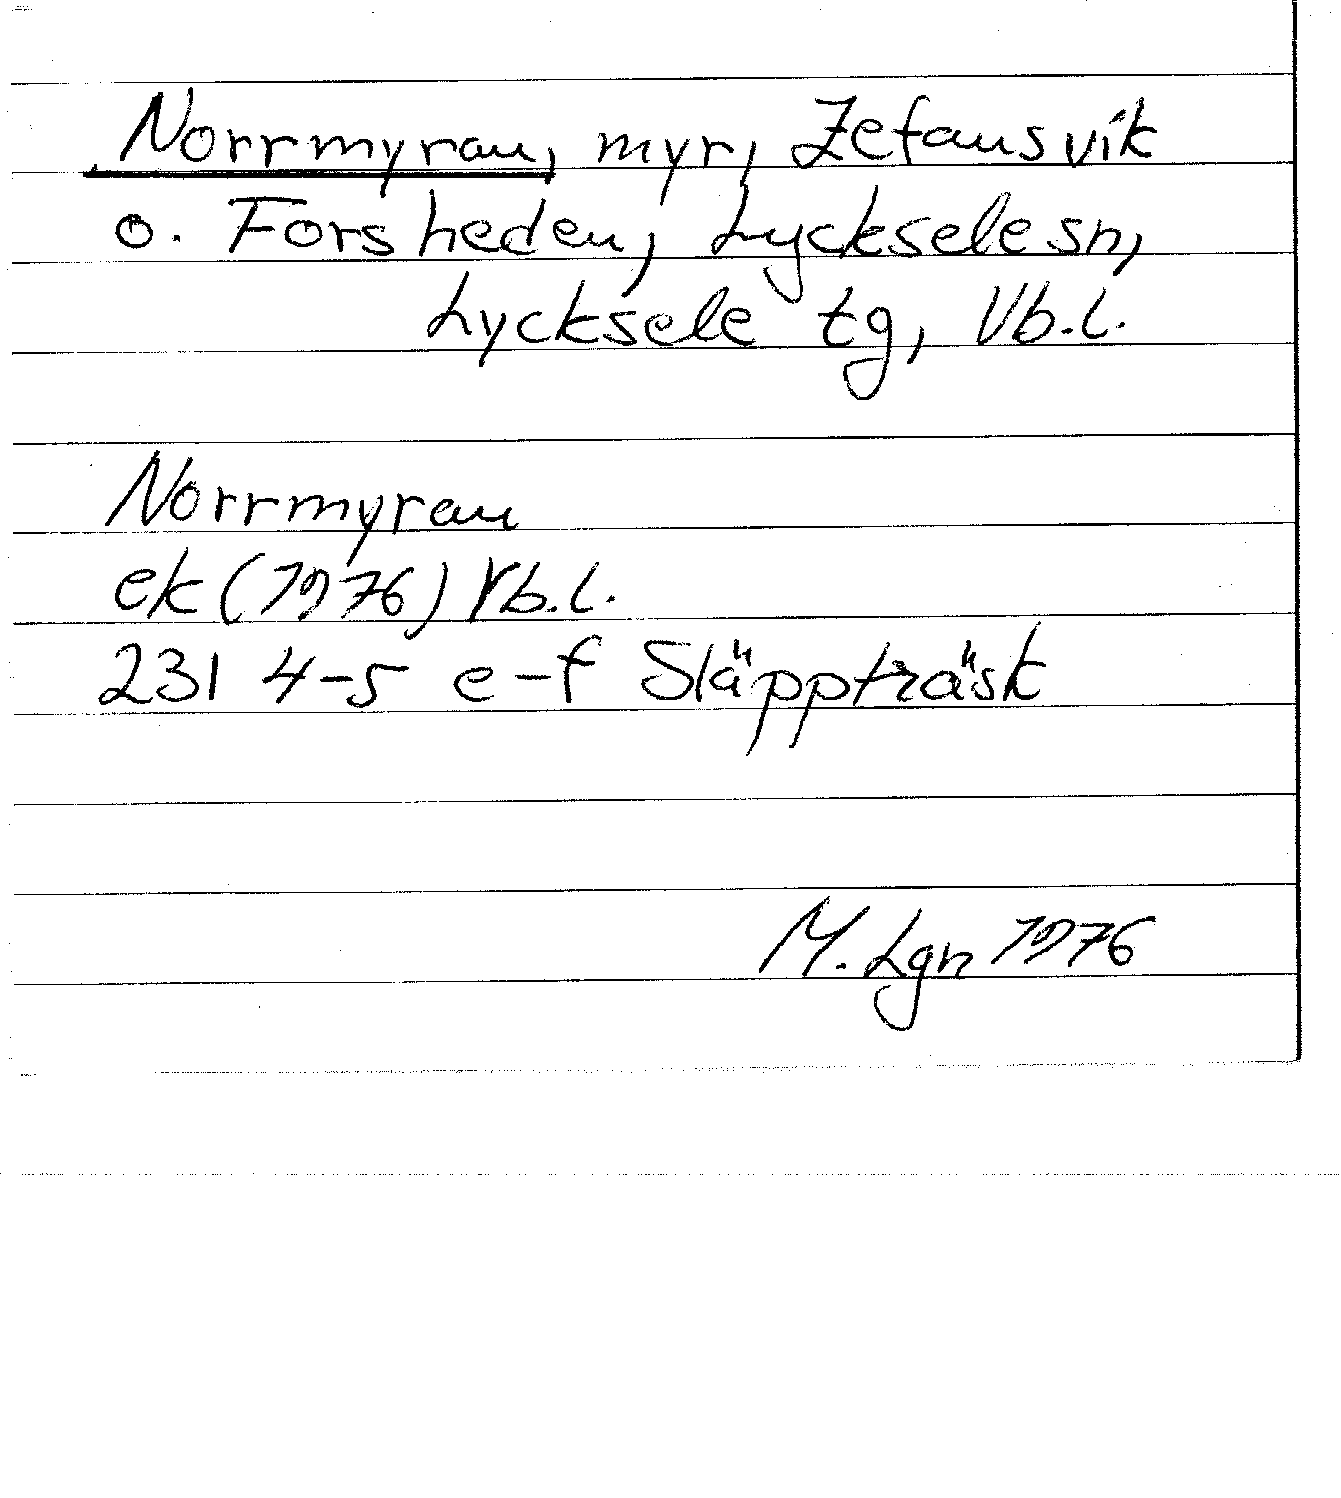 Norrmyran, myr, Zefansvik
o. Forsheden, Lycksele sn,
Lycksele tg, Vb.l.
Norrmyran
ek (1976) Vb.l.
23I 4-5 e-f Släppträsk
M. Lgn 1976